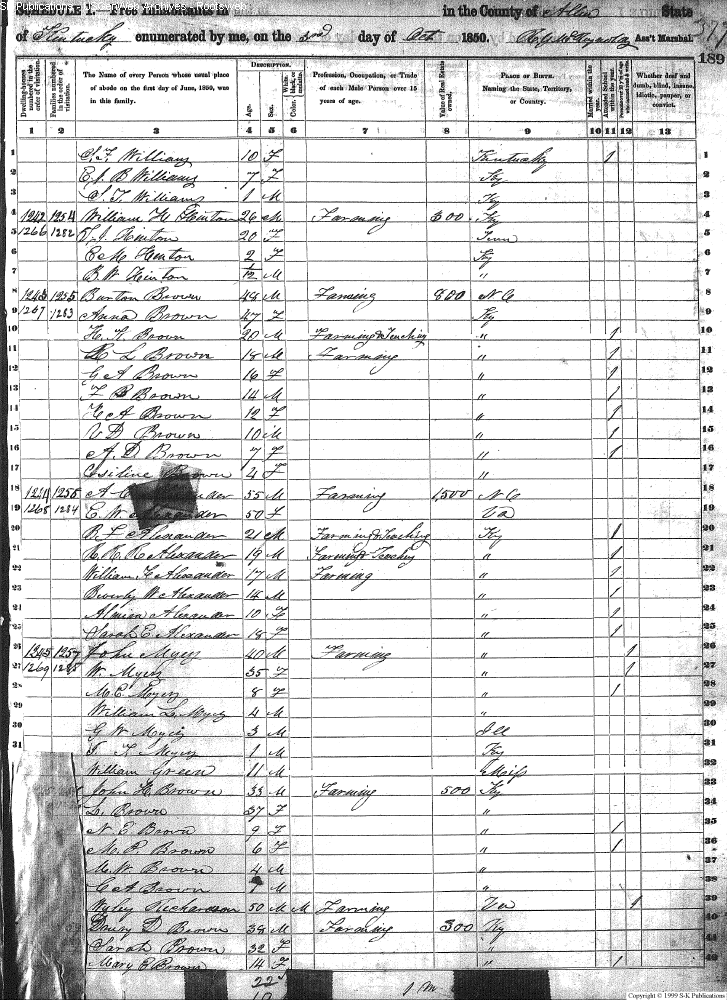 SK Publications - AncestryWeb Archives - Rootsweb
SCHEDULE I.—Free Inhabitants in in the County of Allen State
of Kentucky enumerated by me, on the 3rd day of Oct 1850. Ass't Marshal.
189
Dwelling-houses numbered in the order of visitation.
Families numbered in the order of visitation.
The Name of every Person whose usual place of abode on the first day of June, 1850, was in this family.
Description.
Age. Sex. Color
Profession, Occupation, or Trade of each Male Person over 15 years of age.
Value of Real Estate owned.
Place of Birth. Naming the State, Territory, or Country.
Married within the year.
Attended School within the year.
Whether deaf and dumb, blind, insane, idiotic, pauper, or convict.
1 2 3 4 5 6 7 8 9 10 11 12 13
1 Williams 10 F Kentucky 1 1
2 Williams 7 F Ky 2
3 S. T. Williams 1 M Ky 3
4 1242 1254 William H Hinton 26 M Farming 300 Ky 4
5 1266 1282 Hinton 20 F Tenn 5
6 E M Hinton 2 F Ky 6
7 B W Hinton 1/12 M " 7
8 1243 1255 Burton Brown 48 M Farming 800 N C 8
9 1267 1283 Anna Brown 47 F Ky 9
10 H. A. Brown 20 M Farming & Teaching " 1 10
11 L Brown 18 M Farming " 1 11
12 G A Brown 16 F " 1 12
13 F B Brown 14 M " 1 13
14 A Brown 12 F " 1 14
15 V D Brown 10 M " 1 15
16 A. D. Brown 7 F " 1 16
17 Brown 4 F " 17
18 1244 1256 A 55 M Farming 1,500 N C 18
19 1268 1284 E. W. 50 F Va 19
20 Alexander 21 M Farming & Teaching Ky 1 20
21 Alexander 19 M Farming & Teaching " 1 21
22 William Alexander 17 M Farming " 1 22
23 Beverly W Alexander 14 M " 1 23
24 Almira Alexander 10 F " 1 24
25 Sarah E. Alexander 18 F " 1 25
26 1245 1257 John Myers 40 M Farming " 1 26
27 1269 1285 W. Myers 35 F " 1 27
28 M. E. Myers 8 F " 1 28
29 William L. Myers 4 M " 29
30 G W Myers 3 M Ill 30
31 Myers 1 M Ky 31
William Green 11 M Miss 32
John H. Brown 33 M Farming 500 Ky 33
L. Brown 37 F " 34
N. E Brown 9 F " 1 35
M. P. Brown 6 F " 1 36
M. W. Brown 4 M " 37
Brown M "
Wyley Richardson 50 M M Farming Va 1 39
D Brown 38 M Farming 300 Ky
Sarah Brown 32 F "
Mary E Brown 14 F " 1
22
1 M
Copyright © 1999 S-K Publications